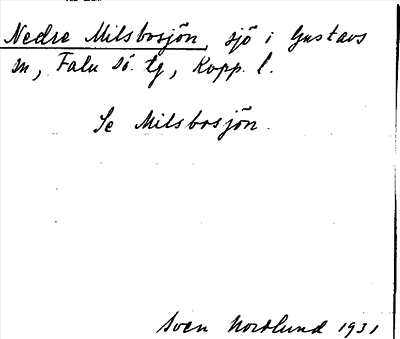 Nedre Milsbosjön, sjö i Gustavs
sn, Falu sö. tg, Kopp. l.
Se Milsbosjön.
Sven Nordlund 1931